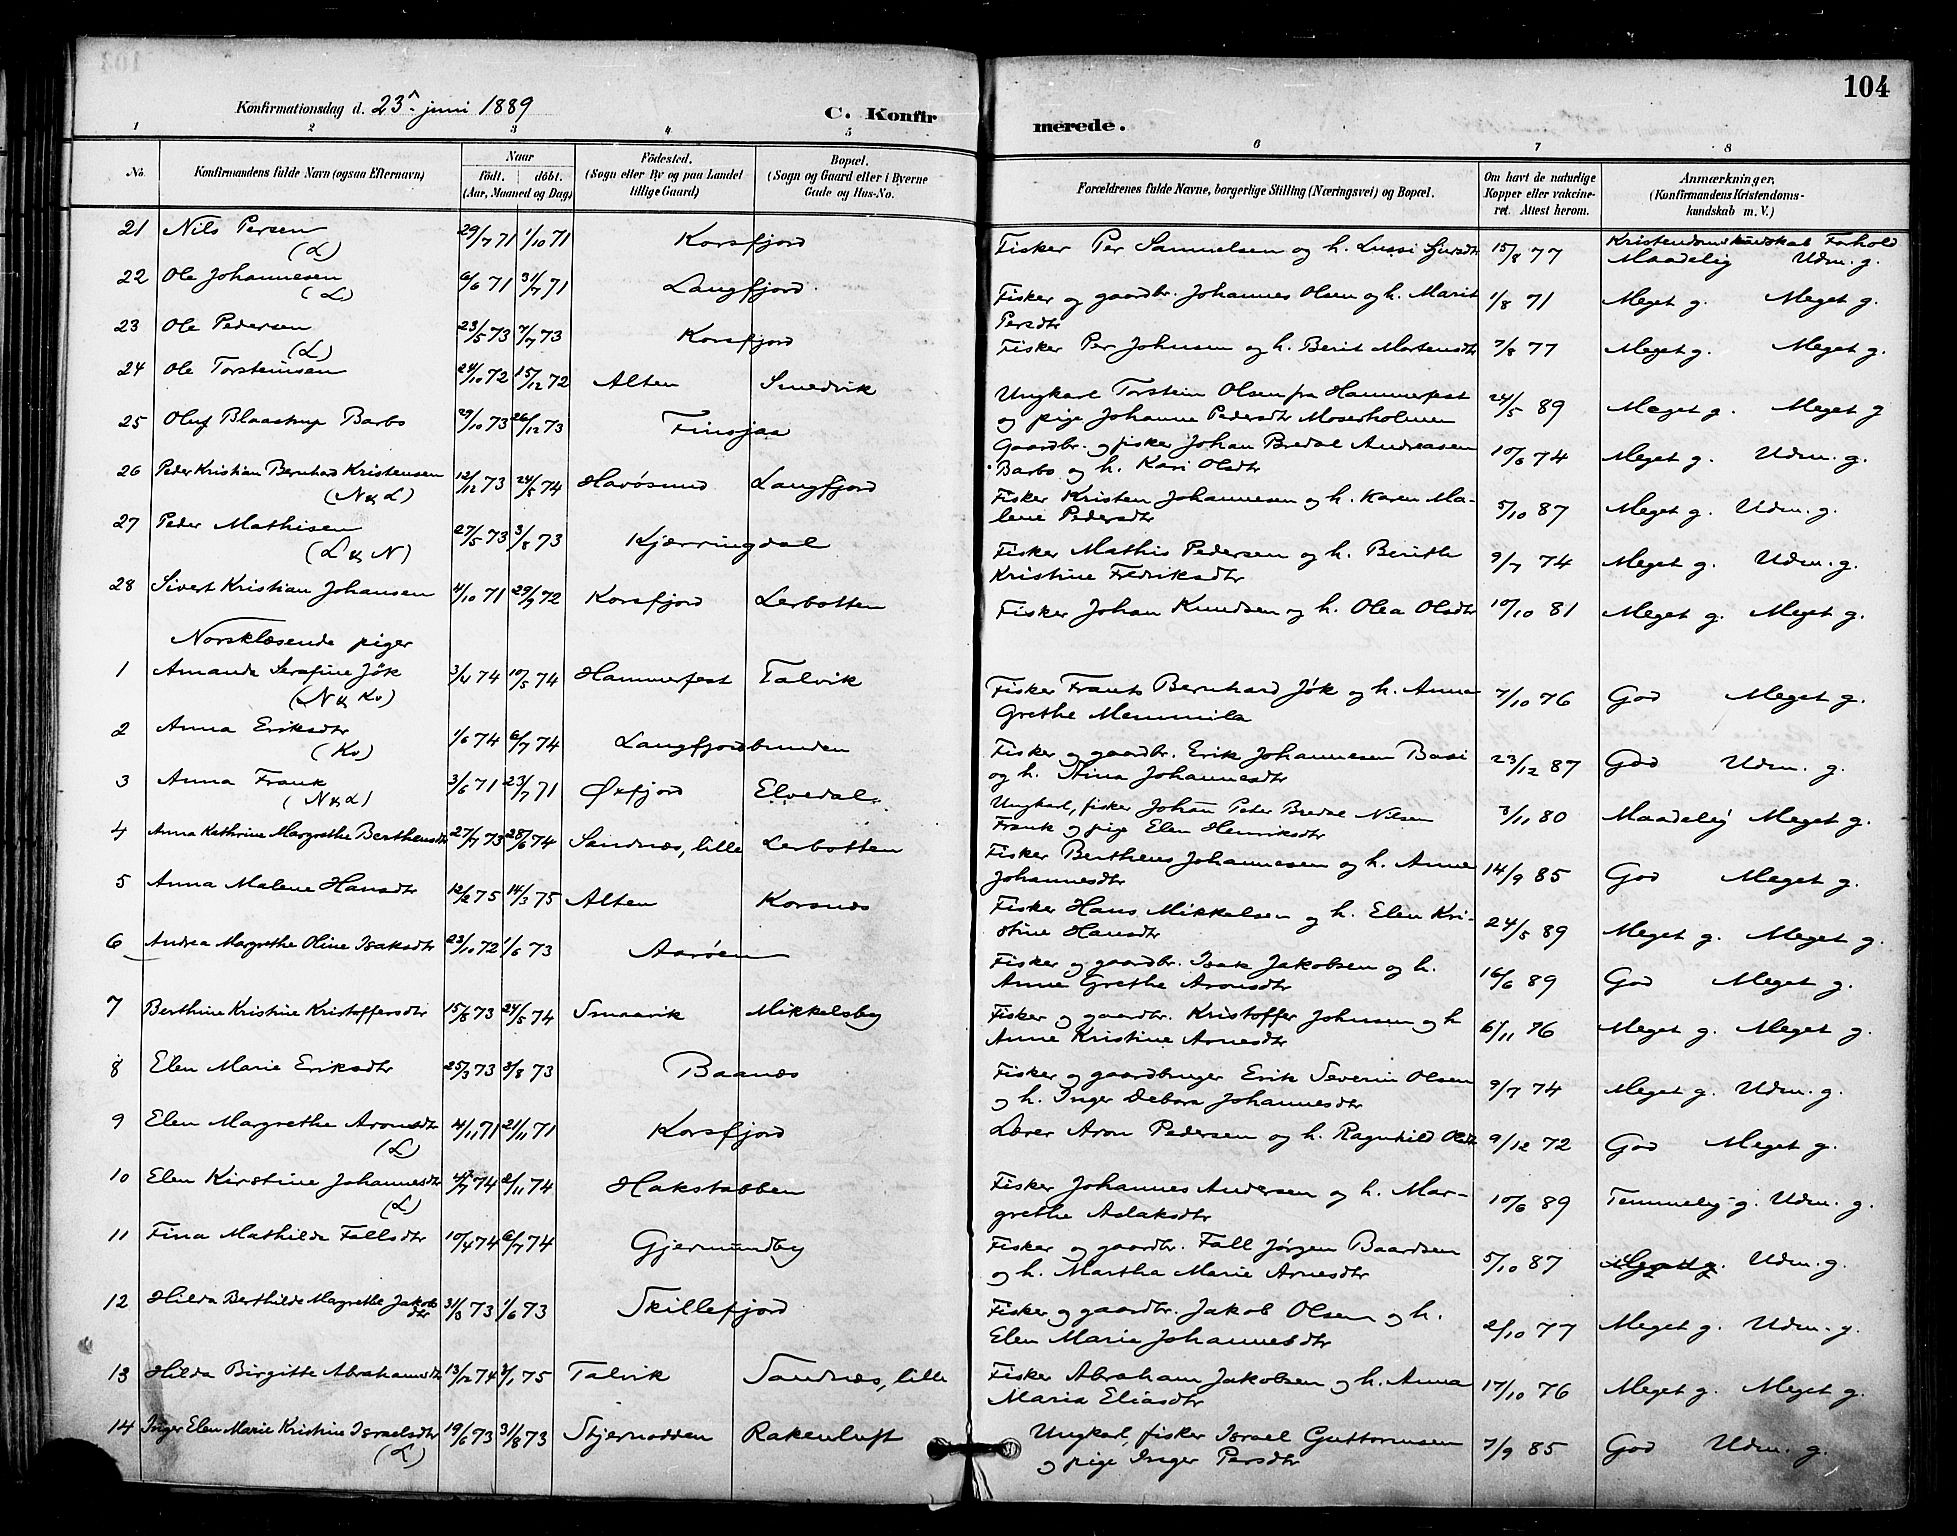 104
Konfirmationsdag d. 23. juni 1889
C. Konfirmerede.
1 2 3 4 5 6 7 8
No. Konfirmandens fulde Navn (ogsaa Efternavn) Naar födt. döbt. (Aar, Maaned og Dag) Födested. (Sogn eller By og paa Landet tillige Gaard) Bopæl. (Sogn og Gaard eller i Byerne Gade og Hus-No. Forældrenes fulde Navne, borgerlige Stilling (Næringsvei) og Bopæl. Om havt de naturlige Kopper eller vakcineret. Attest herom. Anmærkninger. (Konfirmandens Kristendomskundskab m. V.)
Kristendomskundskab Forhold
21 Nils Persen (L) 29/7 71 1/10 71 Korsfjord Fisker Per Samuelsen og h. Lussi 15/8 77 Maadelig Udm. g.
22 Ole Johannesen (L) 6/6 71 31/7 71 Langfjord Fisker og gaardbr. Johannes Olsen og h. Marit Persdtr 1/8 71 Meget g. Meget g.
23 Ole Pedersen (L) 23/5 73 7/7 73 Korsfjord Fisker Per Johnsen og h. Berit Mortensdtr 7/8 77 Meget g. Meget g.
24 Ole Torsteinsen 24/10 72 15/12 72 Alten Smedvik Ungkarl Torstein Olsen fra Hammerfest og pige Johanne Pedersdtr Moserholmen 24/5 89 Meget g. Meget g
25 Oluf Blaastrup Barbo 29/10 73 26/12 73 Finsjaa Gaardbr. og fisker Johan Bredal Andreasen Barbo og h. Kari Olsdtr 10/6 74 Meget g. Udm. g.
26 Peder Kristian Bernhard Kristensen (N & L) 12/12 73 24/5 74 Havösund Langfjord Fisker Kristen Johannesen og h. Karen Malene Pedersdtr 5/10 87 Meget g. Udm. g.
27 Peder Mathisen (L & N) 27/5 73 3/8 73 Kjærringdal Fisker Mathis Pedersen og h. Berith Kristine Fredriksdtr 9/7 74 Meget g. Udm. g.
28 Sivert Kristian Johansen 4/10 71 29/9 72 Korsfjord Lerbotten Fisker Johan Knudsen og h. Olea Olsdtr 10/10 81 Meget g. Meget g.
Norsklæsende piger
1 Amanda Serafine Jök (N & Kv) 3/4 74 10/5 74 Hammerfest Talvik Fisker Frants Bernhard Jök og h. Anna Grethe Memmila 7/10 76 God Meget g.
2 Anna Eriksdtr (Kv) 1/6 74 6/7 74 Langfjordbunden Fisker og gaardbr. Erik Johannesen Basi og h. Stina Johannesdtr 23/12 87 God Udm. g.
3 Anna Frank (N & L) 3/6 71 23/7 71 Øxfjord Elvedal Ungkarl, fisker Johan Peter Bredal Nilsen Frank og pige Elen Henriksdtr 3/11 80 Maadelig Meget g.
4 Anna Kathrine Margrethe Berthensdtr 27/7 73 28/6 74 Sandnæs, lille Lerbotten Fisker Berthens Johannesen og h. Anne Johannesdtr 14/9 85 God Meget g.
5 Anna Malene Hansdtr 12/2 75 14/3 75 Alten Korsnæs Fisker Hans Mikkelsen og h. Elen Kristine Hansdtr 24/5 89 Meget g. Meget g.
6 Andrea Margrethe Oline Isaksdtr 23/10 72 1/6 73 Aaröen Fisker og gaardbr. Isak Jakobsen og h. Anne Grethe Aronsdtr 16/6 89 God Meget g.
7 Berthine Kristine Kristoffersdtr 15/8 73 24/5 74 Smaavik Mikkelsby Fisker og gaardbr. Kristoffer Johnsen og h Anne Kristine Arnesdtr 6/11 76 Meget g. Meget g.
8 Elen Marie Eriksdtr 25/3 73 3/8 73 Baanæs Fisker og gaardbruger Erik Severin Olsen og h. Inger Debora Johannesdtr 9/7 74 Meget g. Udm. g.
9 Elen Margrethe Aronsdtr (L) 4/11 71 21/11 71 Korsfjord Lærer Aron Pedersen og h. Ragnhild Olsdtr 9/12 72 God Meget g.
10 Elen Kirstine Johannesdtr (L) 74 2/11 74 Hakstabben Fisker Johannes Andersen og h. Margrethe Aslaksdtr 10/6 89 Temmelig g. Udm. g.
11 Fina Mathilde Fallsdtr 10/4 74 6/7 74 Gjermundby Fisker og gaardbr. Fall Jørgen Baardsen og h. Martha Marie Arnesdtr 5/10 87 Meget g. Udm. g.
12 Hilda Berthilde Magrethe Jakobsdtr 31/3 73 1/6 73 Skillefjord Fisker og gaardbr. Jakob Olsen og h. Elen Marie Johannesdtr 2/10 77 Meget g. Udm. g.
13 Hilda Birgitte Abrahamsdtr 13/12 74 3/1 75 Talvik Sandnæs, lille Fisker Abraham Jakobsen og h. Anna Maria Eliasdtr 17/10 76 Meget g. Meget g.
14 Inger Elen Marie Kristine Israelsdtr (L) 19/6 73 31/8 73 Stjernodden Rakenluft Ungkarl, fisker Israel Guttormsen og pige Inger Persdtr 7/9 85 God Udm. g.